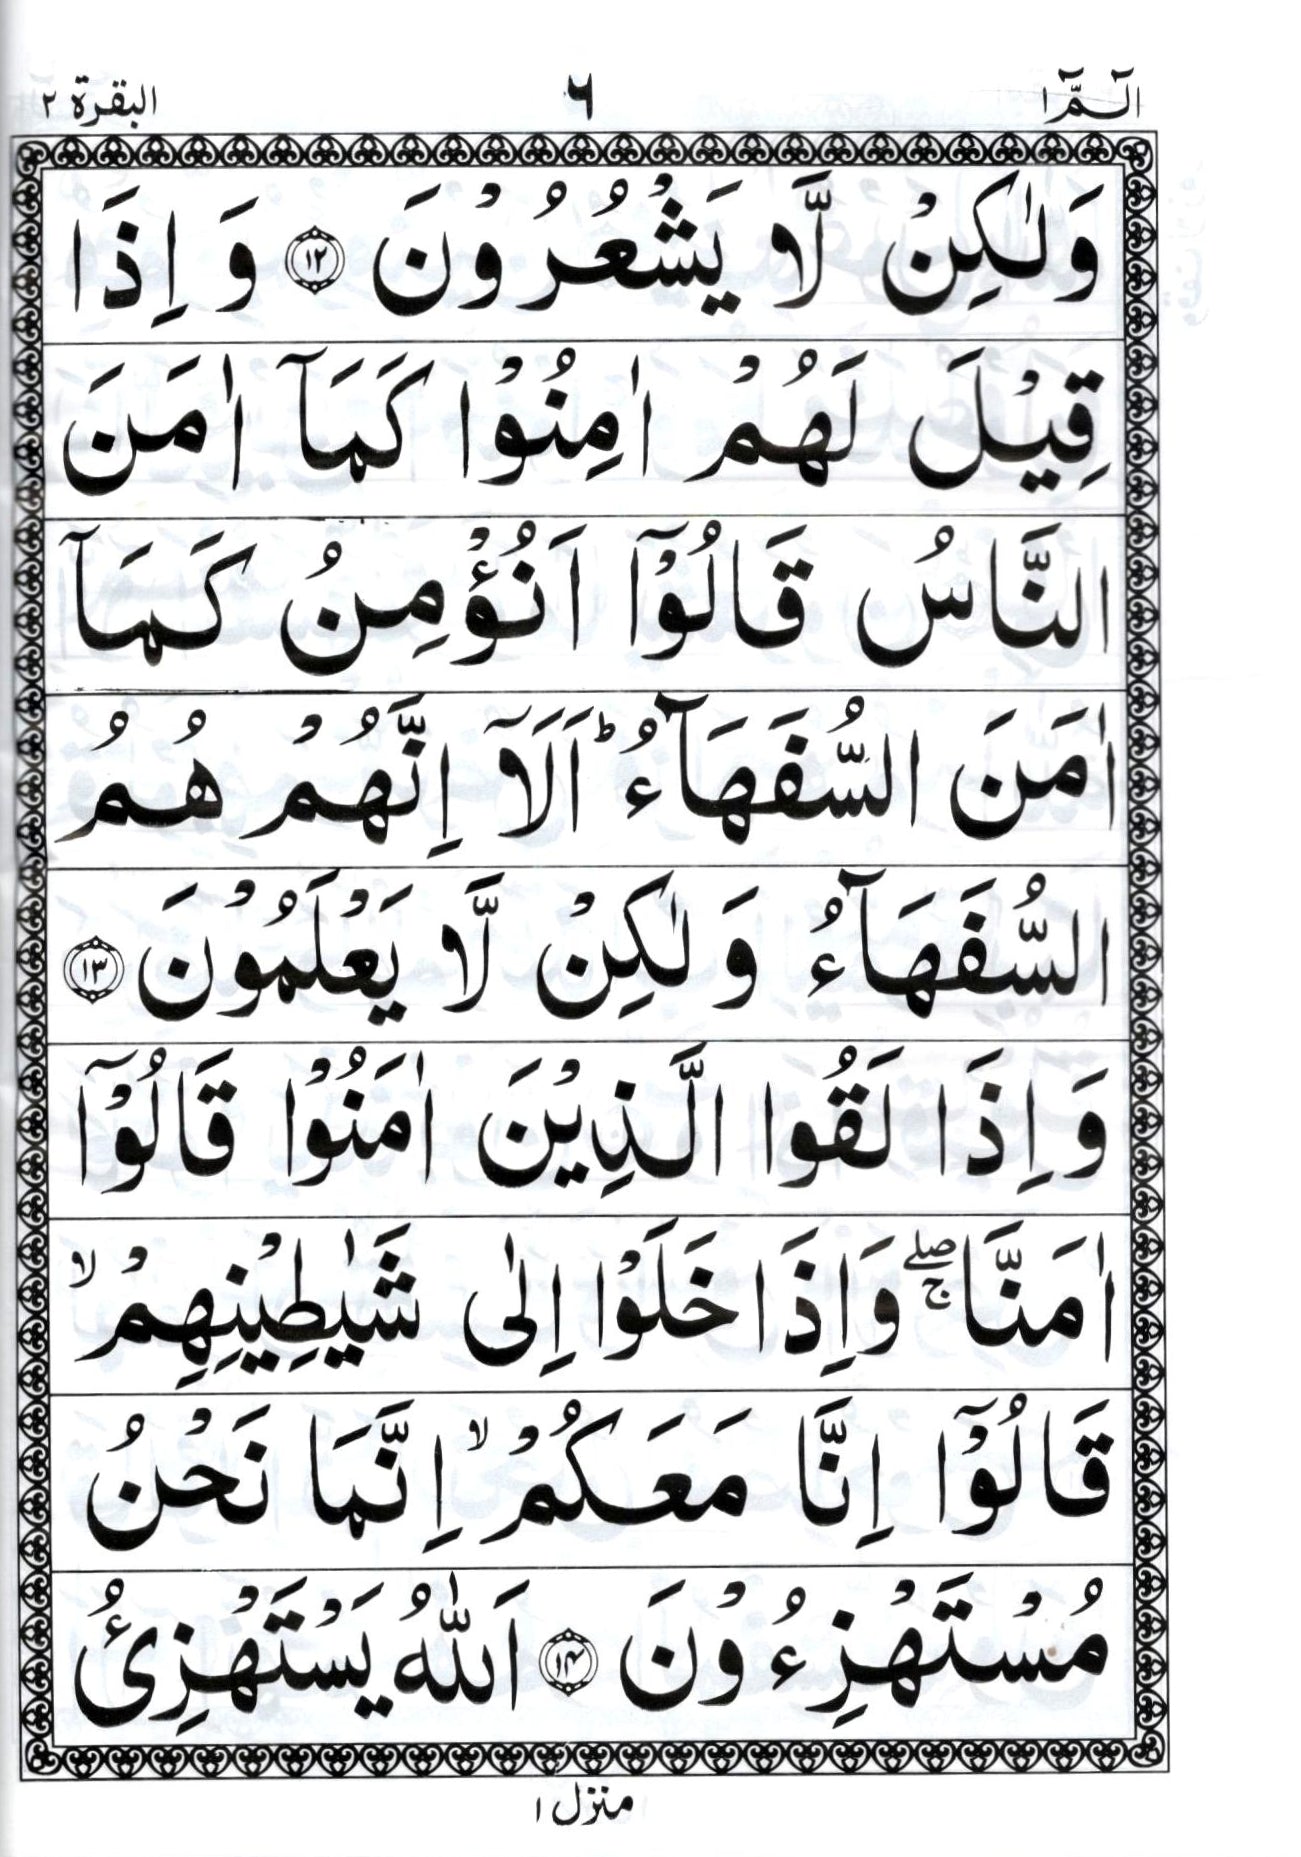 الٓمّٓ ١ ٦ البقرة ٢
وَلٰكِنْ لَّا يَشْعُرُوْنَ ﴿١٢﴾ وَ اِذَا
قِيْلَ لَهُمْ اٰمِنُوْا كَمَآ اٰمَنَ
النَّاسُ قَالُوْٓا اَنُؤْمِنُ كَمَآ
اٰمَنَ السُّفَهَآءُ ؕ اَلَآ اِنَّهُمْ هُمُ
السُّفَهَآءُ وَ لٰكِنْ لَّا يَعْلَمُوْنَ ﴿١٣﴾
وَ اِذَا لَقُوا الَّذِيْنَ اٰمَنُوْا قَالُوْٓا
اٰمَنَّا ۖۚ وَاِذَا خَلَوْا اِلٰى شَيٰطِيْنِهِمْ ۙ
قَالُوْٓا اِنَّا مَعَكُمْ ۙ اِنَّمَا نَحْنُ
مُسْتَهْزِءُوْنَ ﴿١٤﴾ اَللّٰهُ يَسْتَهْزِئُ
منزل ١